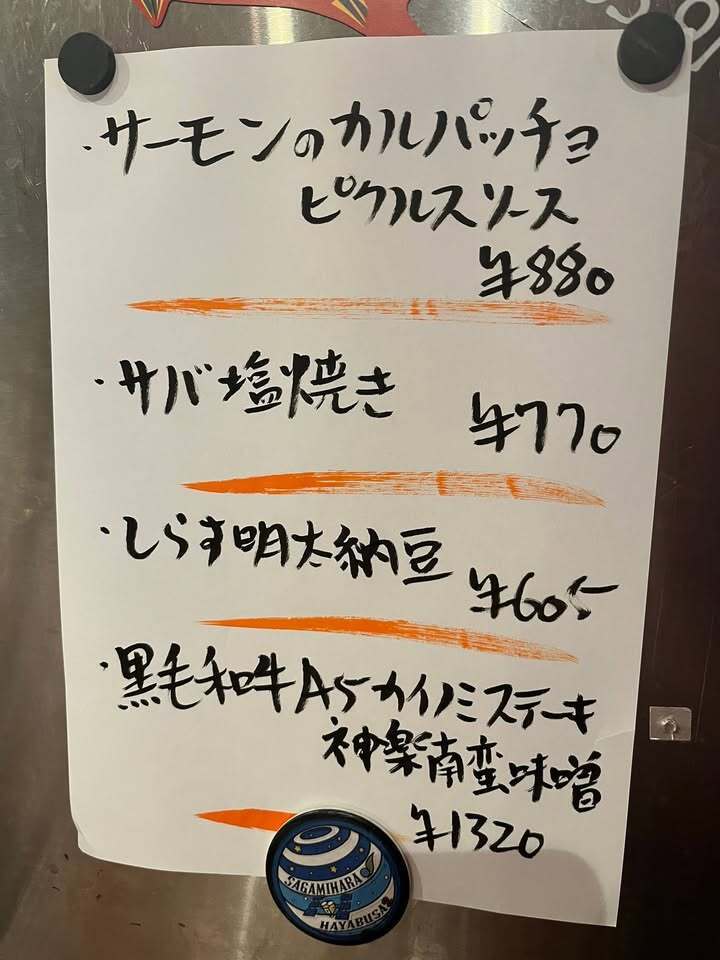 ・サーモンのカルパッチョ
ピクルスソース
¥880
・サバ塩焼き
¥770
・しらす明太納豆
¥605
・黒毛和牛A5カイノミステーキ
神楽南蛮味噌
¥1320
SAGAMIHARA
HAYABUSA2